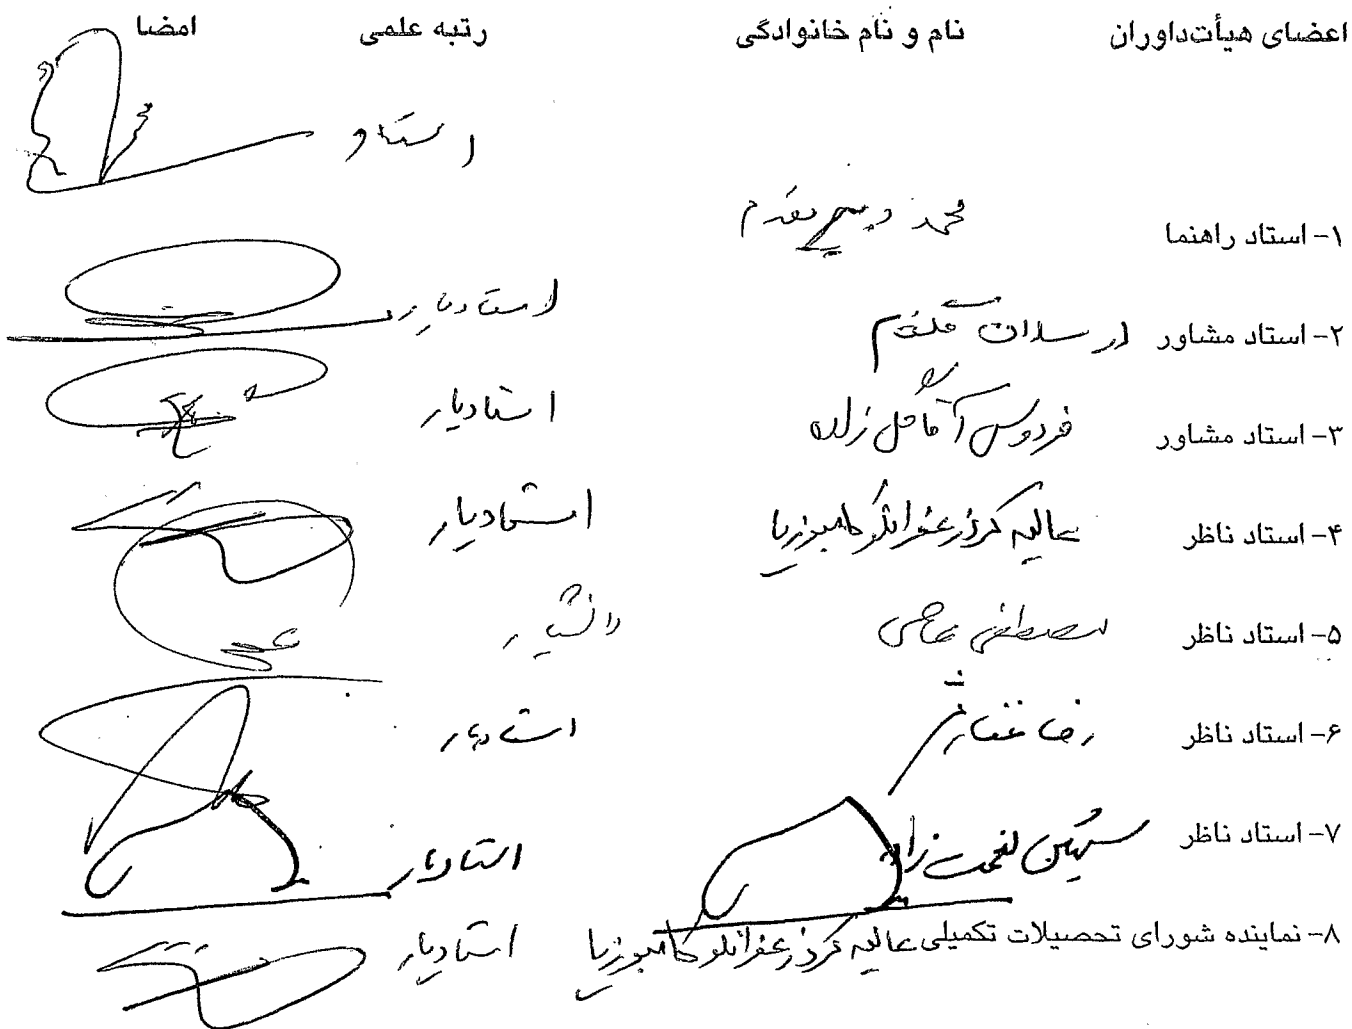 اعضای هیأت‌داوران نام و نام خانوادگی رتبه علمی امضا
استاد
۱- استاد راهنما محمد دبیر مقدم
۲- استاد مشاور ارسلان گلفام استادیار
۳- استاد مشاور فردوس آقاگل زاده استادیار
۴- استاد ناظر عالیه کرد زعفرانلو کامبوزیا استادیار
۵- استاد ناظر مصطفی عاصی دانشیار
۶- استاد ناظر رضا غفار استادیار
۷- استاد ناظر شهین نعمت زاده استادیار
۸- نماینده شورای تحصیلات تکمیلی عالیه کرد زعفرانلو کامبوزیا استادیار